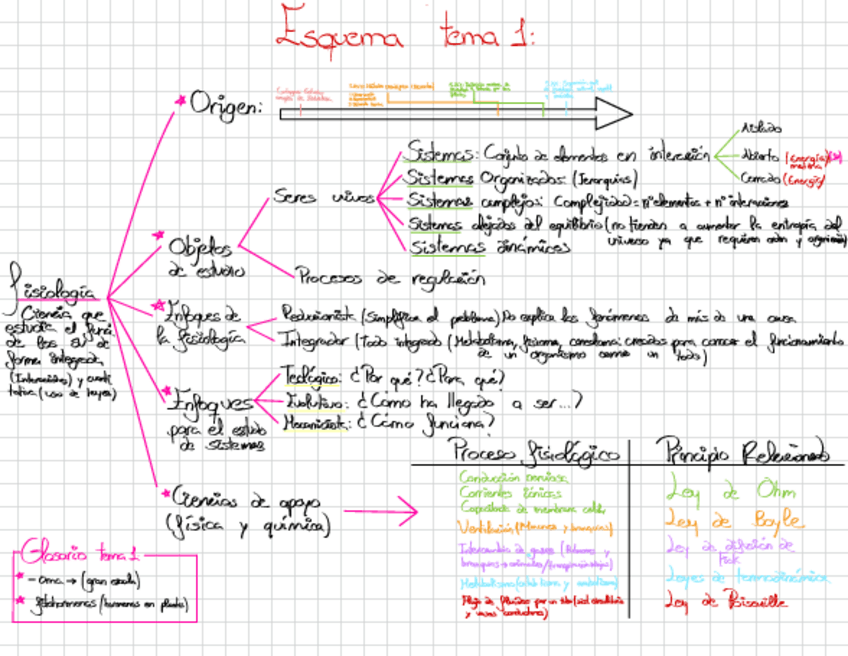 Esquema tema 1:
Origen:
Aislado
Sistemas: Conjunto de elementos en interacción
Abierto (Energía y materia)
Cerrado (Energía)
Sistemas Organizados: (Jerarquías)
Seres vivos
Sistemas complejos: Complejidad = nº elementos + nº interacciones
Sistemas alejados del equilibrio (no tienden a aumentar la entropía del
universo ya que requieren orden y
Sistemas dinámicos
Objetos
de estudio
Procesos de regulación
Fisiología
Ciencia que
estudia el
de los SV de
forma integrada
(Interacciones) y
(uso de leyes)
Enfoques de
la fisiología
Reduccionista (Simplifica el problema) No explica los fenómenos de más de una causa
Integrador (Todo integrado (Metaboloma, fisioma, creados para conocer el funcionamiento
de un organismo como un todo)
Enfoques
para el estudio
de sistemas
Teológico: ¿Por qué? ¿Para qué?
Evolutivo: ¿Cómo ha llegado a ser...?
Mecanicista: ¿Cómo funciona?
Ciencias de apoyo
(física y química)
Proceso fisiológico
Principio Relacionado
Conducción nerviosa
Corrientes iónicas
Capacidad de membrana
Ley de Ohm
Ventilación (Pulmones y branquias)
Ley de Boyle
Intercambio de gases (Pulmones y
Ley de difusión de
Fick
Metabolismo (catabolismo y anabolismo)
Leyes de termodinámica
Flujo de fluidos por un tubo
y vasos
Ley de Poiseuille
Glosario tema 1
- oma → (gran escala)
fitohormonas (hormonas en plantas)